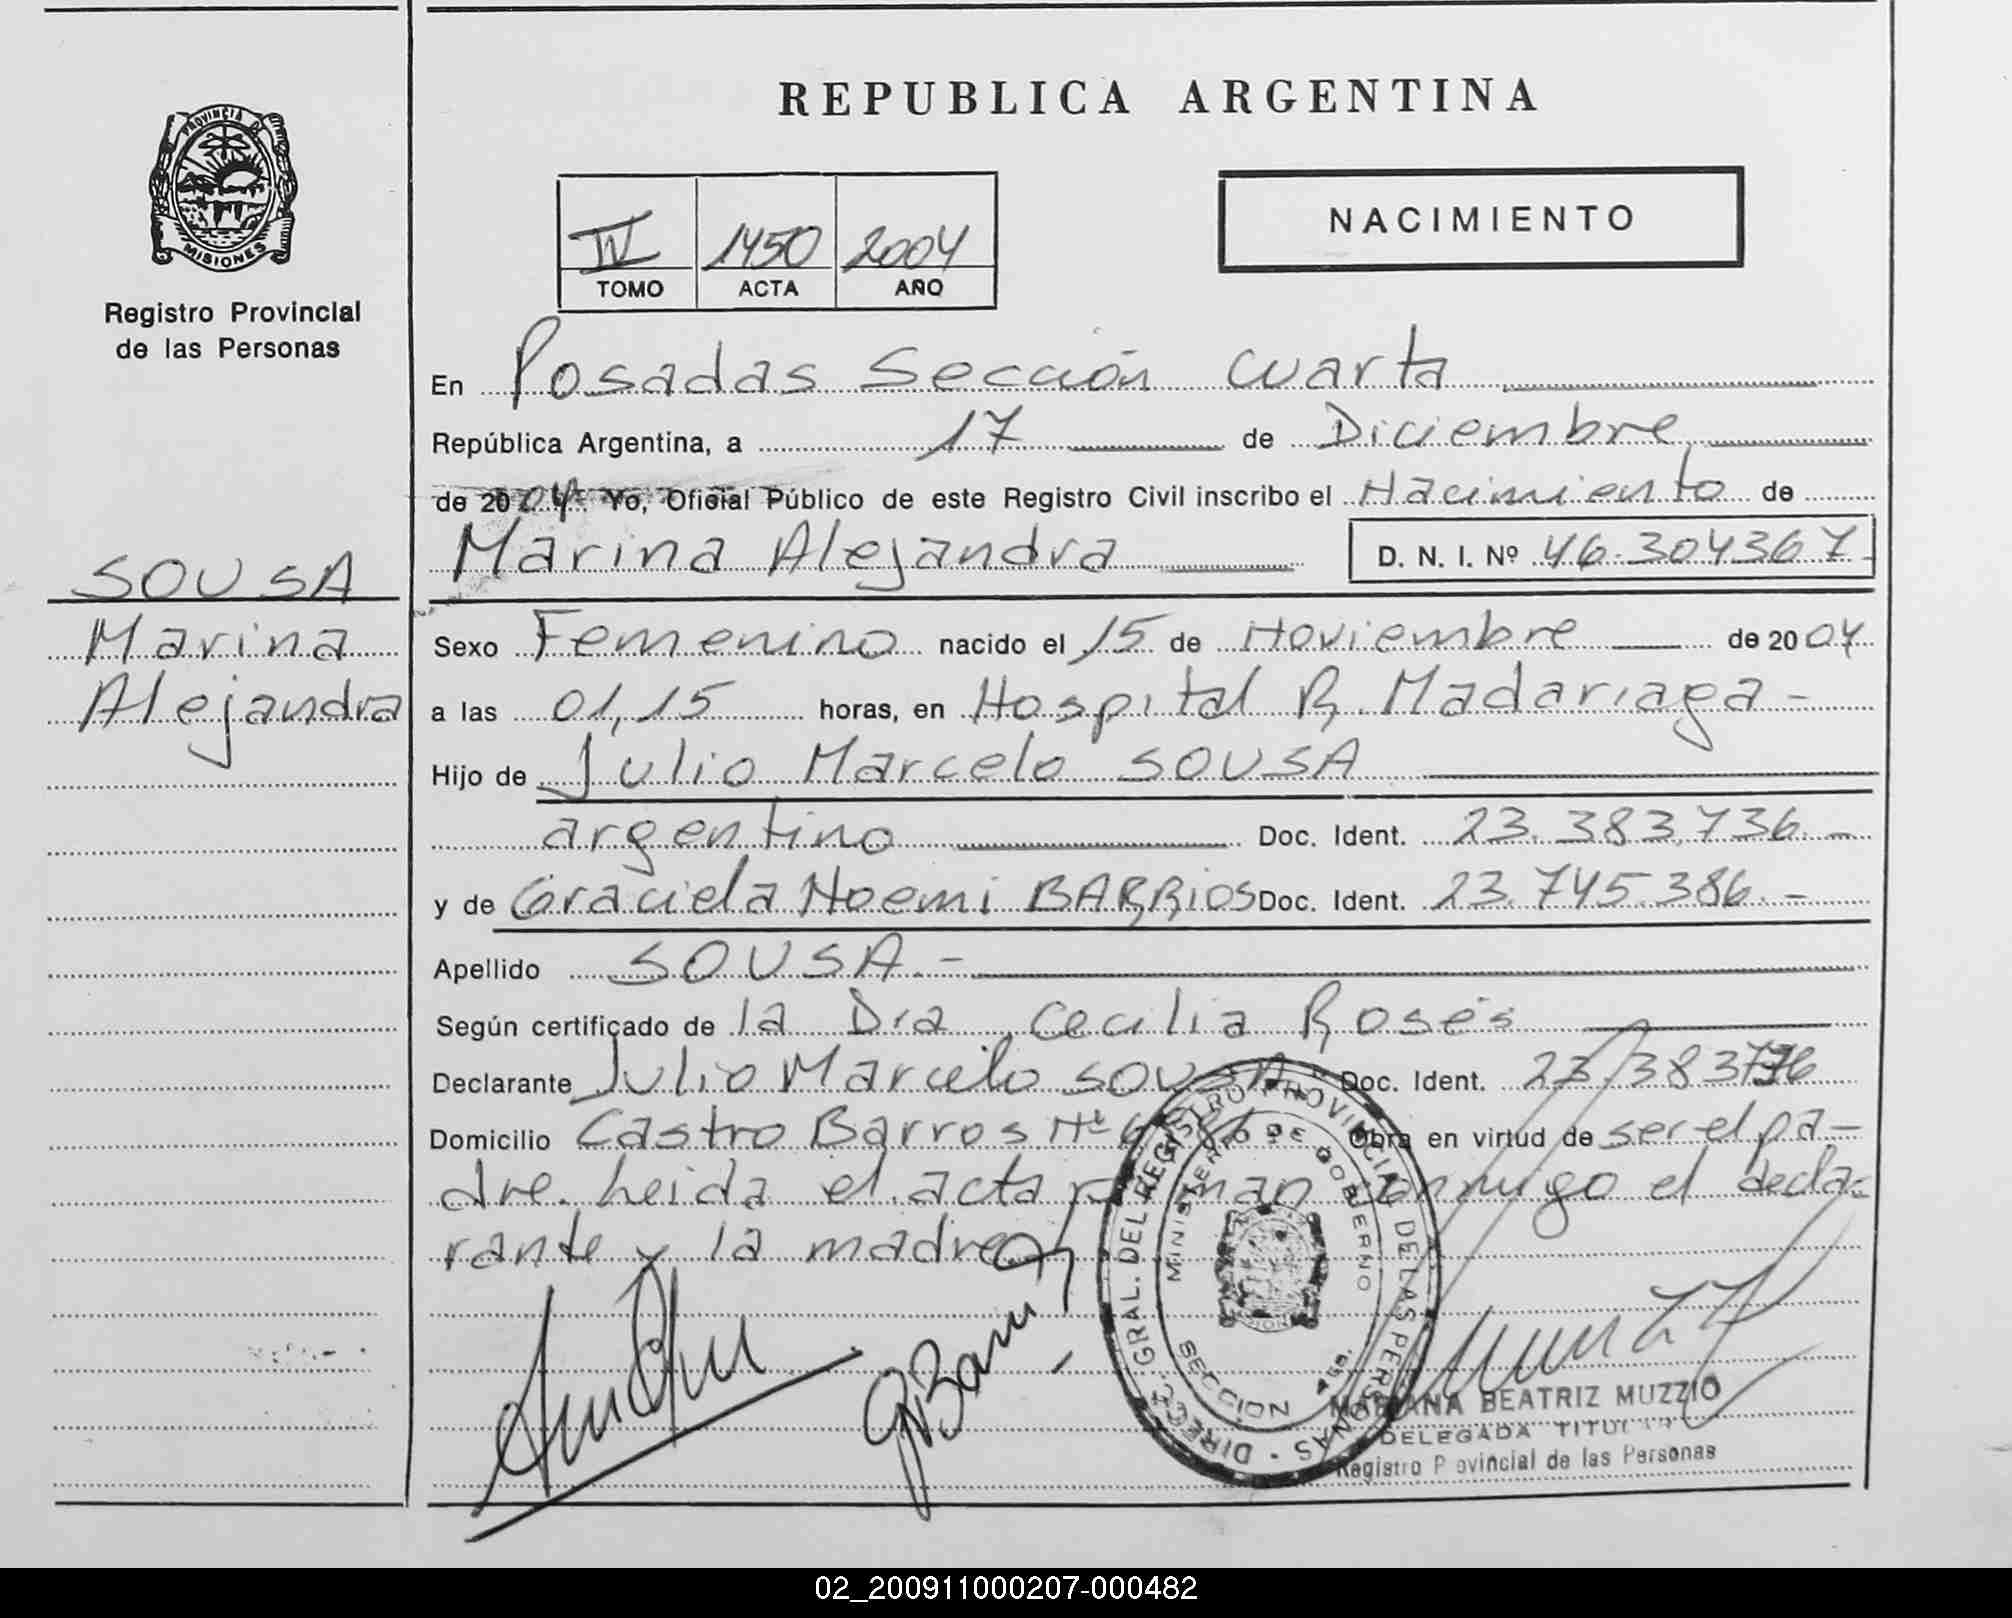 REPUBLICA ARGENTINA
PROVINCIA DE
MISIONES
Registro Provincial
de las Personas
IV 1450 2004
TOMO ACTA AÑO
NACIMIENTO
En Posadas Sección Cuarta
República Argentina, a 17 de Diciembre
de 2004 Yo, Oficial Público de este Registro Civil inscribo el Nacimiento de
Marina Alejandra D. N. I. Nº 46.304367-
SOUSA
Marina
Alejandra
Sexo Femenino nacido el 15 de Noviembre de 2004
a las 01,15 horas, en Hospital R. Madariaga -
Hijo de Julio Marcelo SOUSA
argentino Doc. Ident. 23.383.736.-
y de Graciela Noemi BARRIOS Doc. Ident. 23.745.386.-
Apellido SOUSA.-
Según certificado de la Dra Cecilia Rosés
Declarante Julio Marcelo SOUSA Doc. Ident. 23.383736
Domicilio Castro Barros Nº Obra en virtud de ser el pa-
dre. Leida el acta firman conmigo el decla-
rante y la madre
DIREC. GRAL. DEL REGISTRO PROVINCIAL DE LAS PERSONAS
MINISTERIO DE GOBIERNO
SECCION
MARIANA BEATRIZ MUZZIO
DELEGADA TITULAR
Registro Provincial de las Personas
02_200911000207-000482